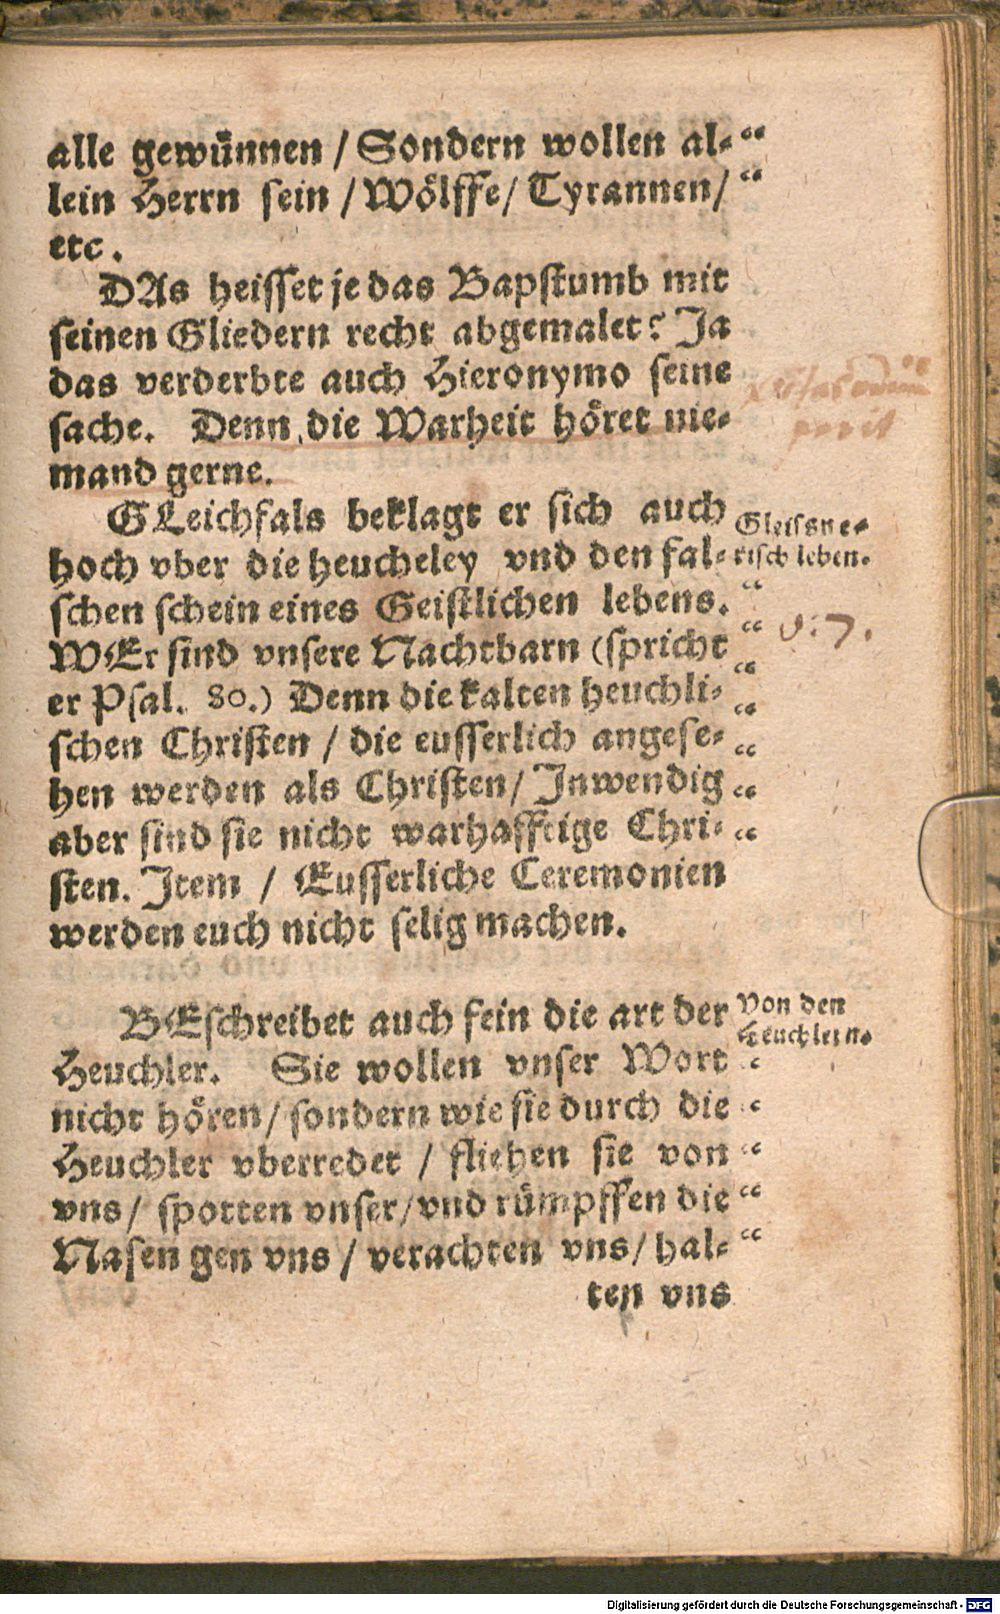 alle gewünnen / Sondern wollen al-“
lein Herrn sein / Wölffe / Tyrannen / “
etc.
DAs heisset je das Bapstumb mit
seinen Gliedern recht abgemalet? Ja
das verderbte auch Hieronymo seine
sache. Denn die Warheit höret nie-
mand gerne.
GLeichfals beklagt er sich auch
hoch vber die heucheley vnd den fal-
schen schein eines Geistlichen lebens. “
Gleisne-
risch leben.
WEr sind vnsere Nachtbarn (spricht “
v. 7.
er Psal. 80.) Denn die kalten heuchli- “
schen Christen / die eusserlich angese- “
hen werden als Christen / Inwendig “
aber sind sie nicht warhafftige Chri- “
sten. Item / Eusserliche Ceremonien
werden euch nicht selig machen.
BEschreibet auch fein die art der
Heuchler. Sie wollen vnser Wort “
Von den
Heuchlern.
nicht hören / sondern wie sie durch die “
Heuchler vberredet / fliehen sie von “
vns / spotten vnser / vnd rümpffen die “
Nasen gen vns / verachten vns / hal- “
ten vns
Digitalisierung gefördert durch die Deutsche Forschungsgemeinschaft - DFG